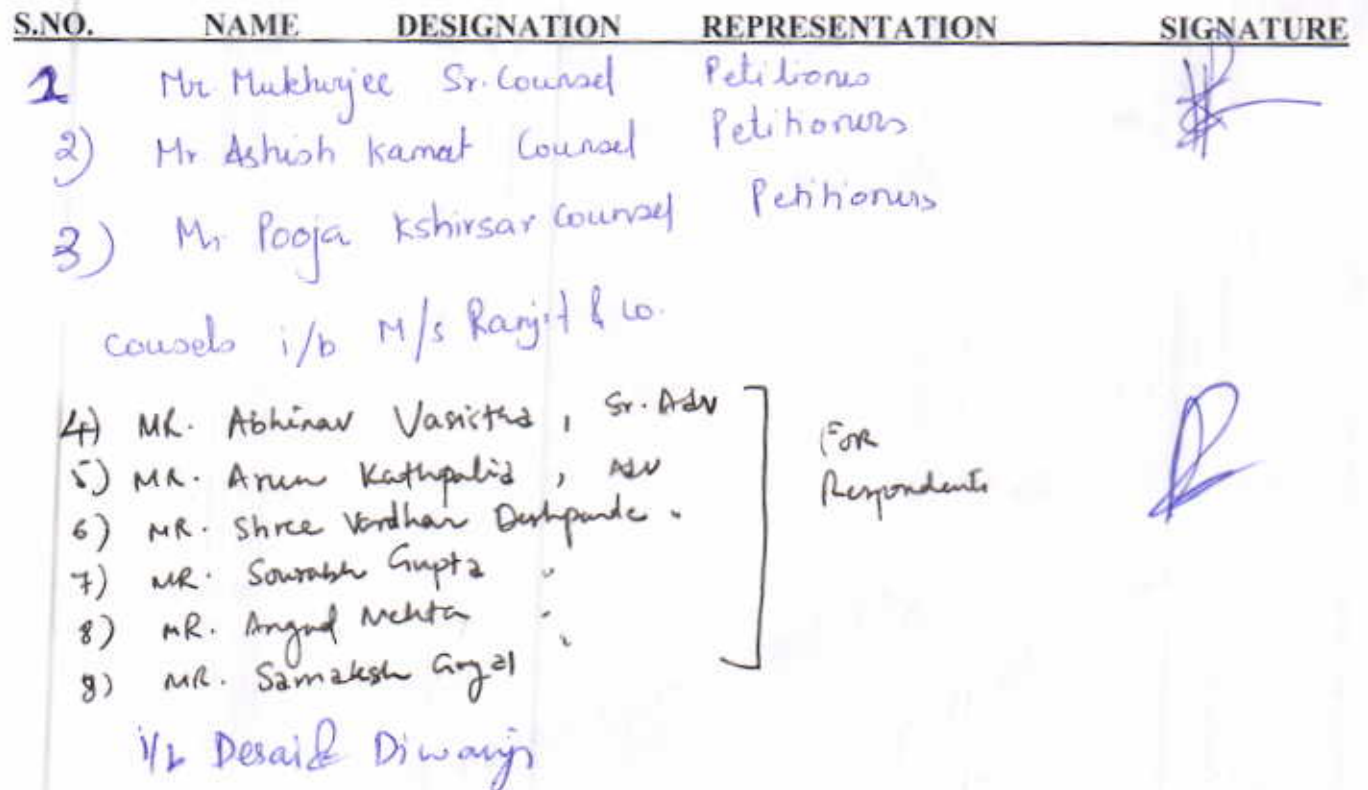 S.NO. NAME DESIGNATION REPRESENTATION SIGNATURE
1 Mr Mukherjee Sr. Counsel Petitioners
2) Mr Ashish Kamat Counsel Petitioners
3) Mr Pooja Kshirsar Counsel Petitioners
Cousels i/b M/s Ranjit & Co.
4) MR. Abhinav Vasictha, Sr. Adv
5) MR. Arun Kathpalia, Adv
For
Respondents
6) MR. Shree Vardhan Deshpande "
7) MR. Sourabh Gupta "
8) MR. Angad Mehta "
9) MR. Samaksh Goyal "
i/b Desai & Diwanji